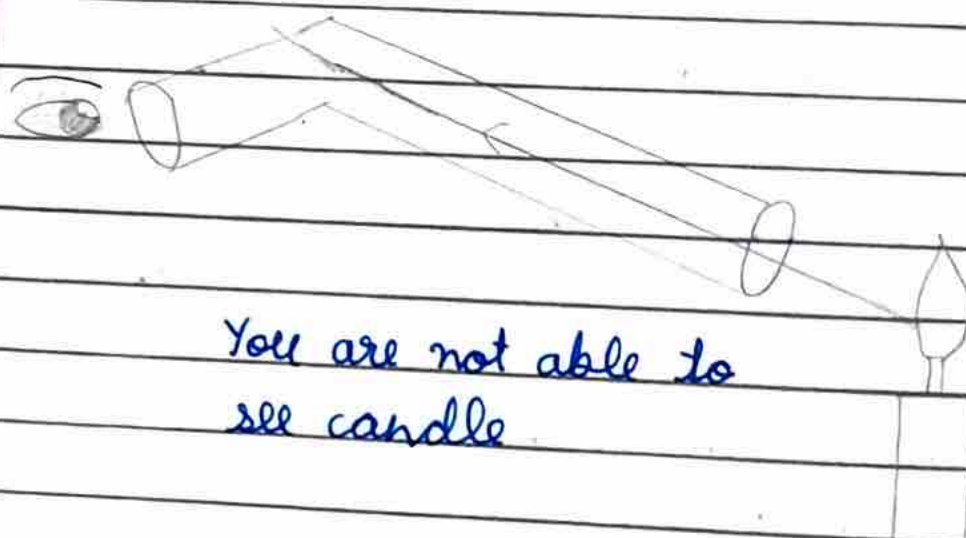 You are not able to
see candle